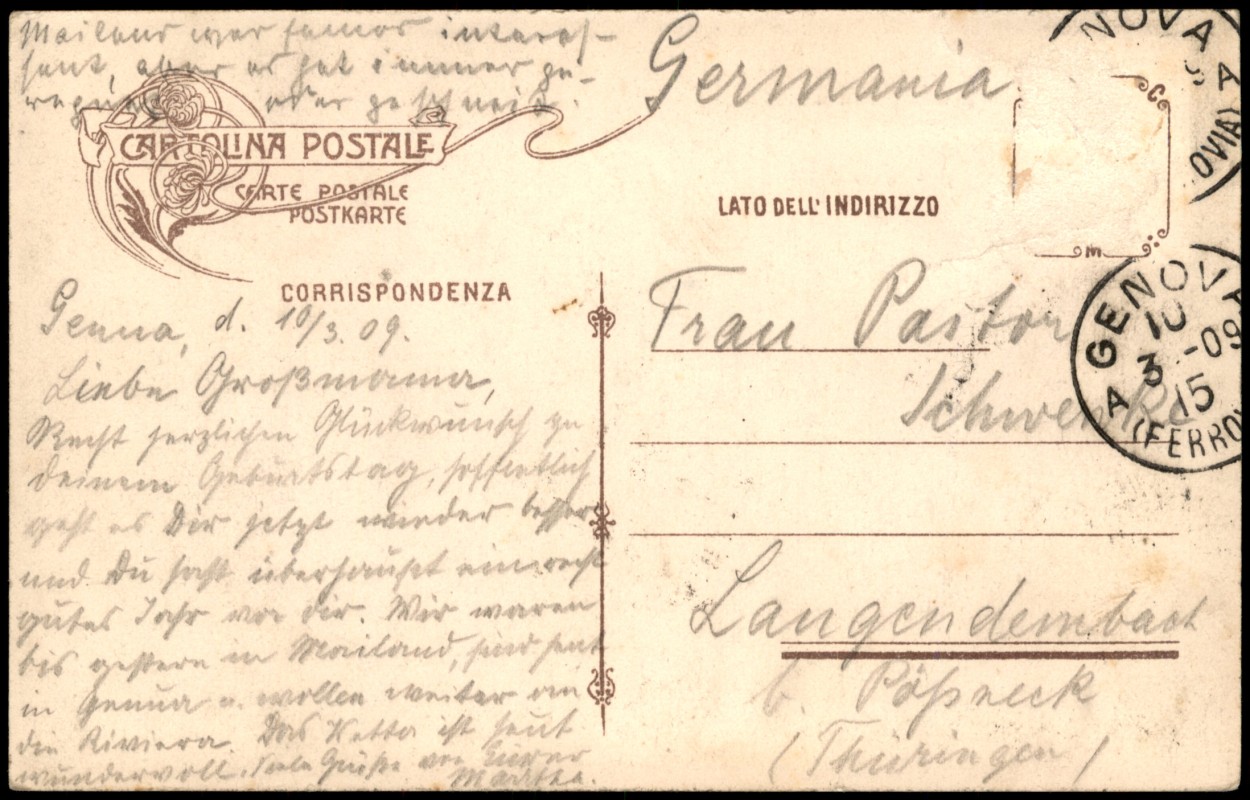 Mailand war famos interes-
sant, aber es hat immer ge-
regnet oder geschneit.
Germania
CARTOLINA POSTALE
CARTE POSTALE
POSTKARTE
LATO DELL' INDIRIZZO
CORRISPONDENZA
C
M
NOVA
A
OVIA)
A GENOVA
10
3 -09
15
(FERROV
Genua, d. 10/3. 09.
Liebe Großmama,
Recht herzlichen Glückwunsch zu
deinem Geburtstag, hoffentlich
geht es Dir jetzt wieder besser
und Du hast überhaupt ein recht
gutes Jahr vor dir. Wir waren
bis gestern in Mailand, sind heut
in Genua u. wollen weiter an
die Riviera. Das Wetter ist heut
wundervoll. Viele Grüße von Eurer
Martha.
Frau Pastor
Schwenke
Langendembach
b. Pößneck
(Thüringen)